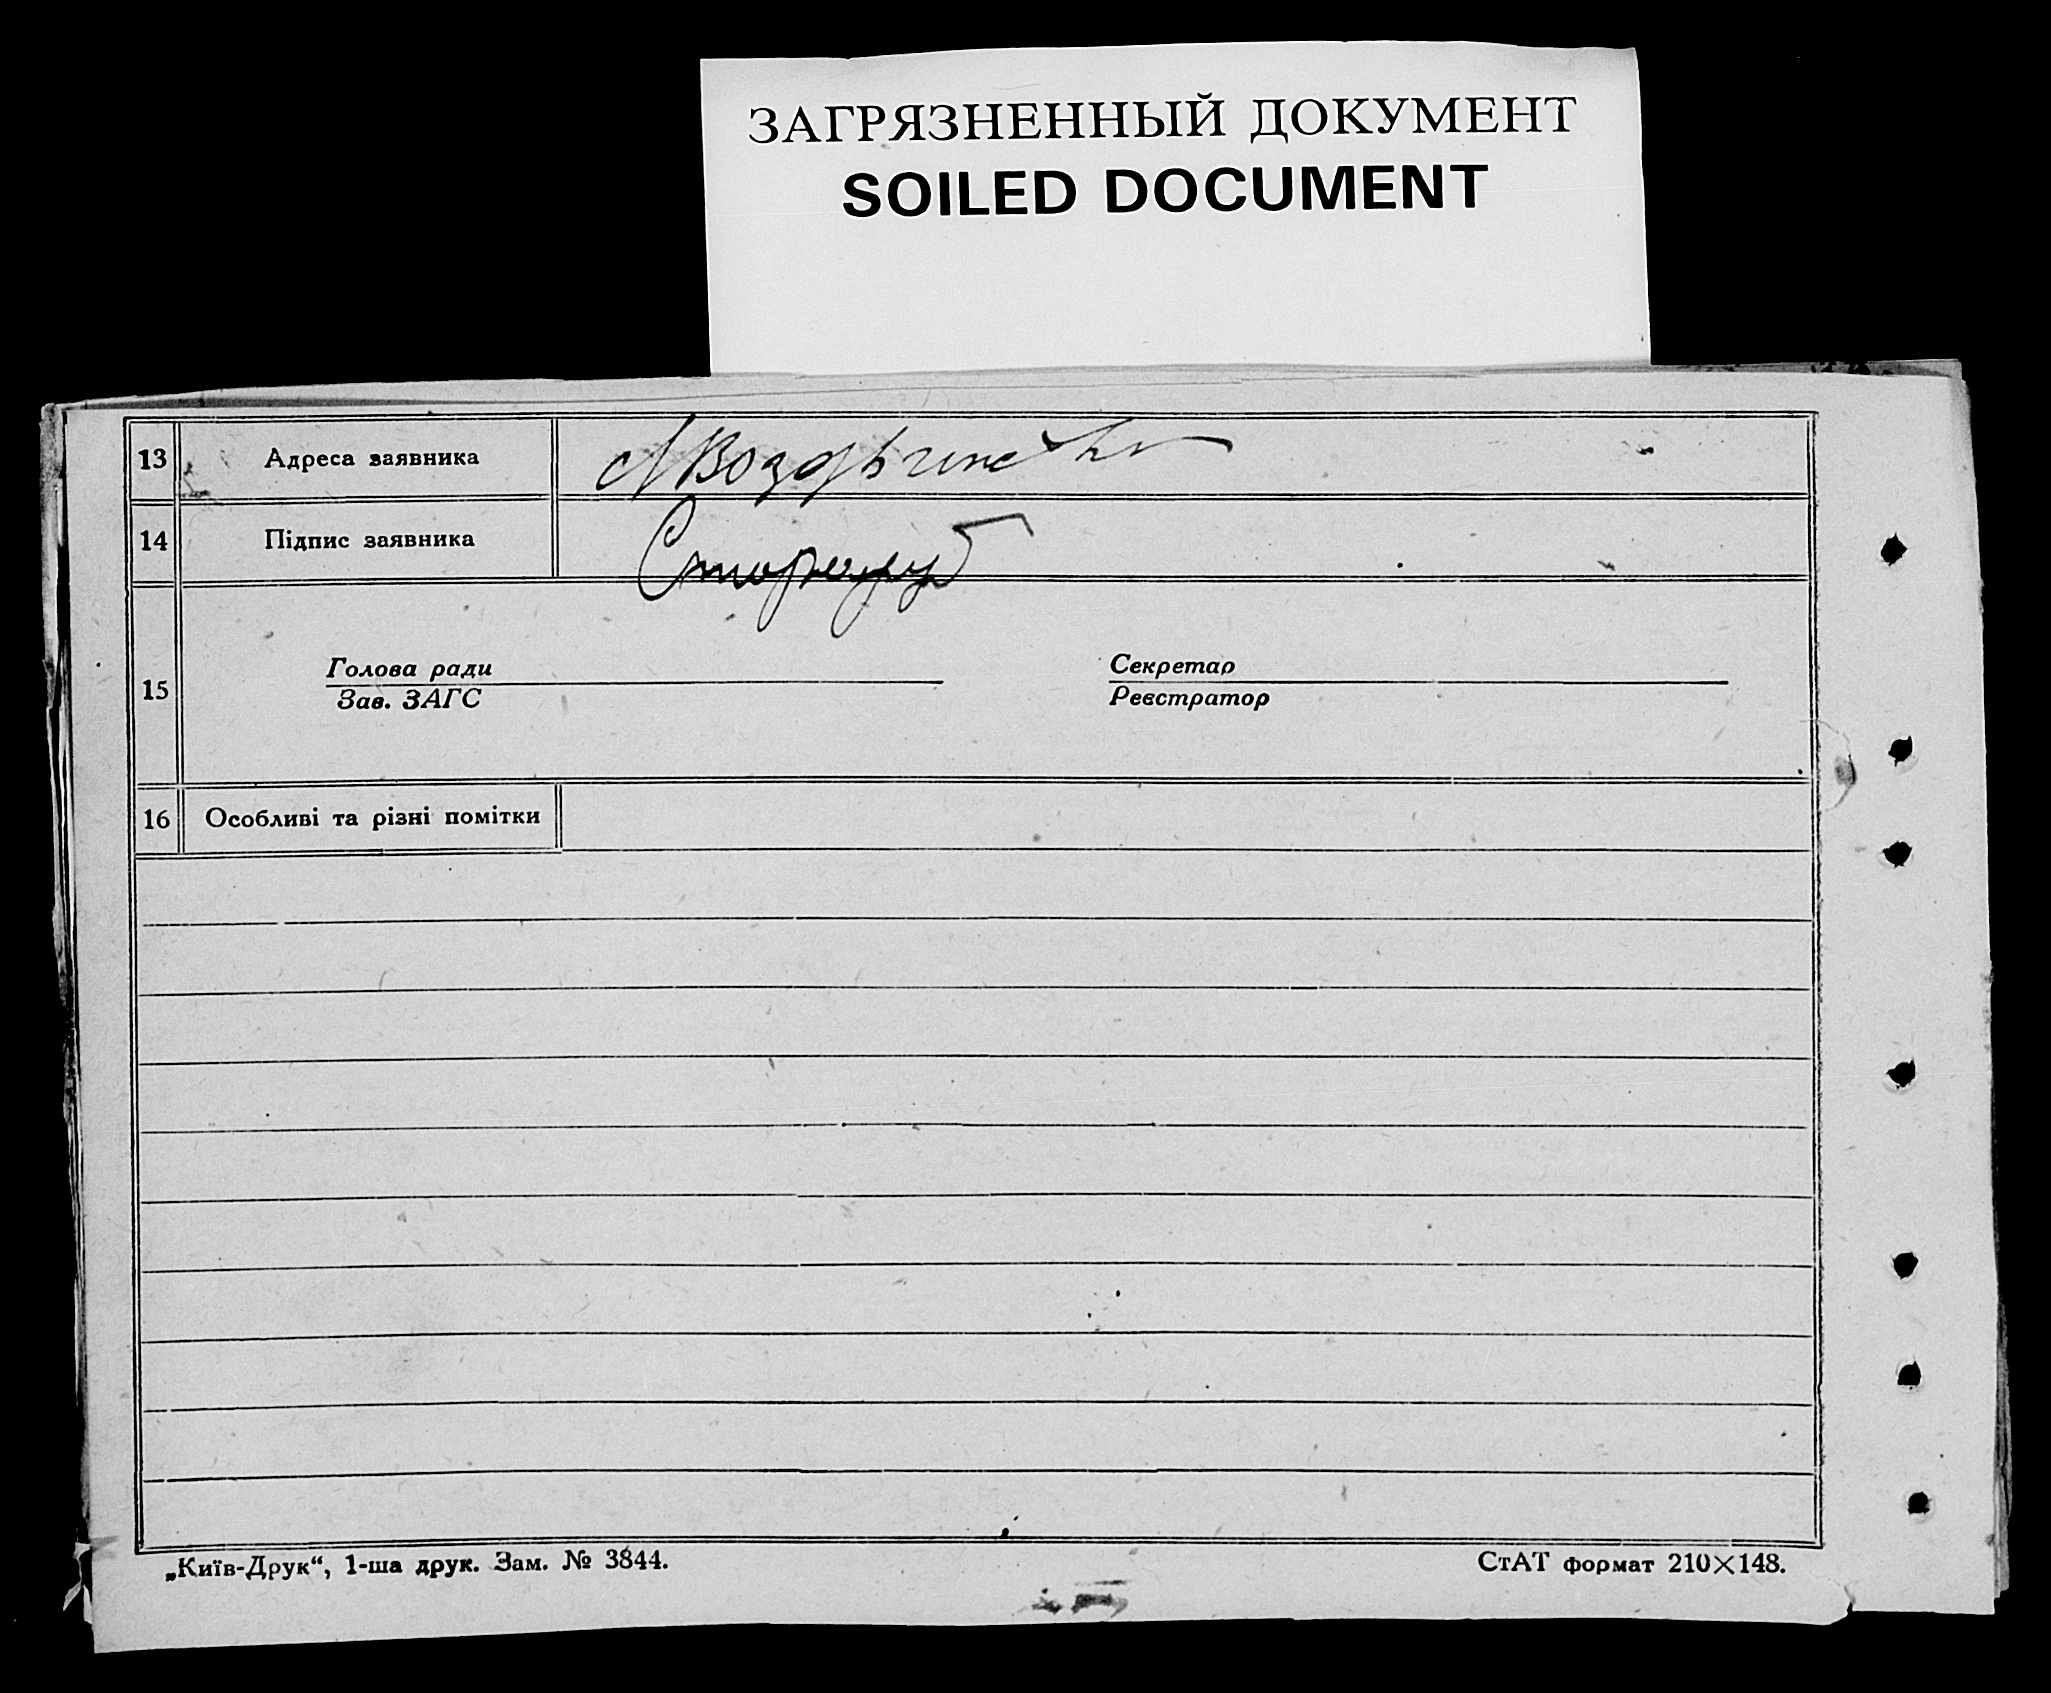 ЗАГРЯЗНЕННЫЙ ДОКУМЕНТ
SOILED DOCUMENT
13 Адреса заявника
14 Підпис заявника
15 Голова ради Секретар
Зав. ЗАГС Реєстратор
16 Особливі та різні помітки
„Київ-Друк“, 1-ша друк. Зам. № 3844. СтАТ формат 210×148.